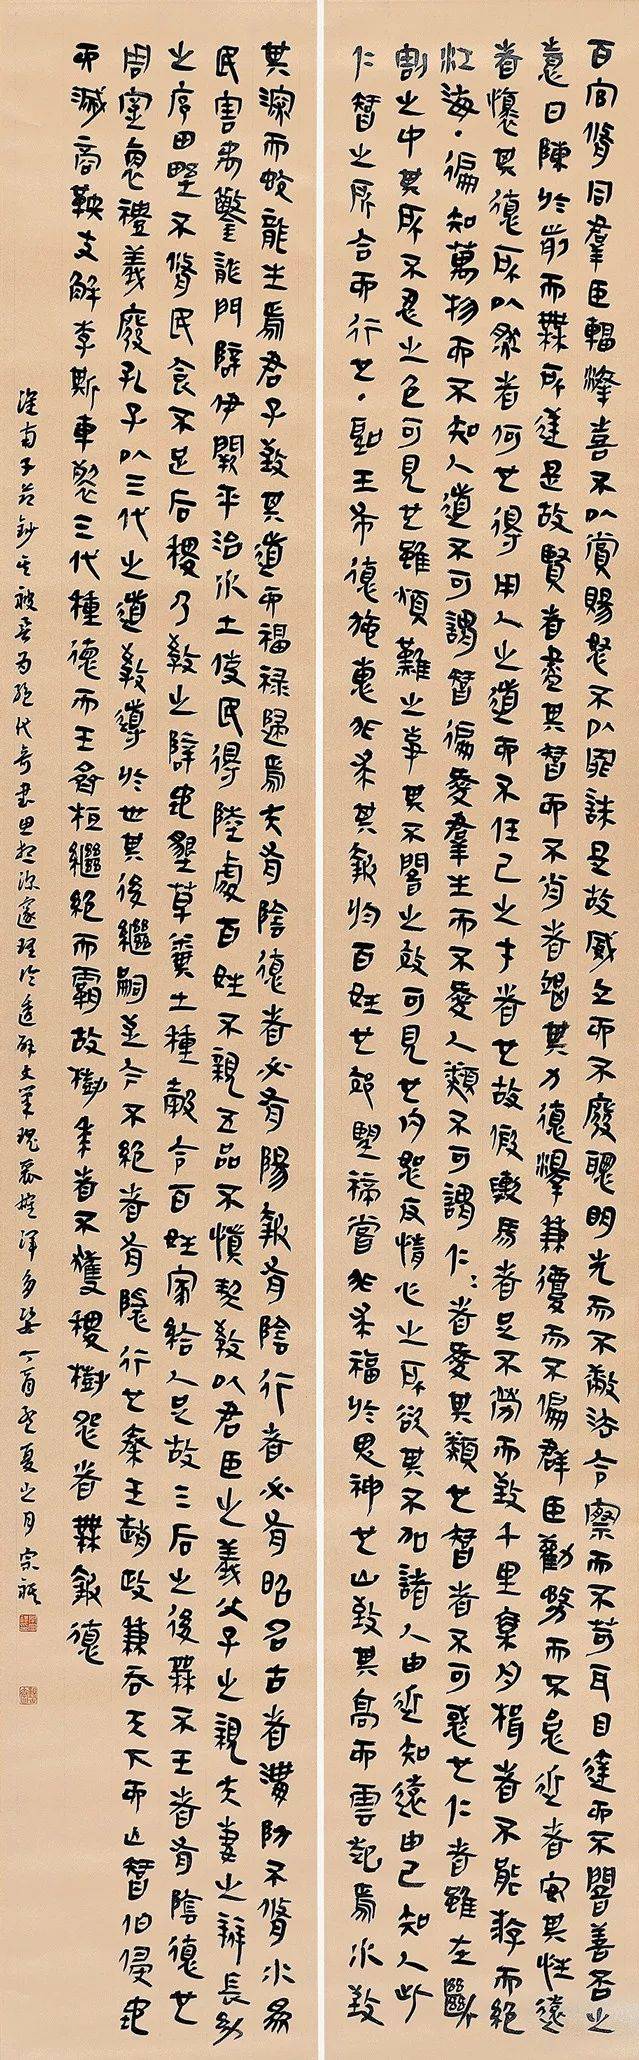 百官脩同羣臣輻湊喜不以賞賜怒不以罪誅是故威立而不廢聰明光而不蔽法令察而不苛耳目達而不闇善否之
意日陳於前而無所逆是故賢者盡其智而不肖者竭其力德澤兼覆而不偏群臣勸務而不怠近者安其性遠
者懷其德所以然者何也得用人之道而不任己之才者也故假輿馬者足不勞而致千里乘舟楫者不能游而絕
江海·徧知萬物而不知人道不可謂智徧愛羣生而不愛人類不可謂仁:者愛其類也智者不可惑也仁者雖在斷
割之中其所不忍之色可見也雖煩難之事其不闇之效可見也內恕反情心之所欲其不加諸人由近知遠由己知人此
仁智之所合而行也·聖王布德施惠非求其報於百姓也郊望禘嘗非求福於鬼神也山致其高而雲起焉水致
其深而蛟龍生焉君子致其道而福祿歸焉夫有陰德者必有陽報有陰行者必有昭名古者溝防不脩水為
民害禹鑿龍門辟伊闕平治水土使民得陸處百姓不親五品不慎契教以君臣之義父子之親夫妻之辨長幼
之序田野不脩民食不足后稷乃教之辟地墾草糞土種穀令百姓家給人足故三后之後無不王者有陰德也
周室衰禮義廢孔子以三代之道教導於世其後繼嗣至今不絕者有隱行也秦王趙政兼吞天下而亡智伯侵地
而滅商鞅支解李斯車裂三代種德而王齊桓繼絕而霸故樹黍者不獲稷樹怨者無報德
淮南子節鈔其被譽為絕代奇書思想深邃理論透辟文筆瑰多姿丁酉孟夏之月宗